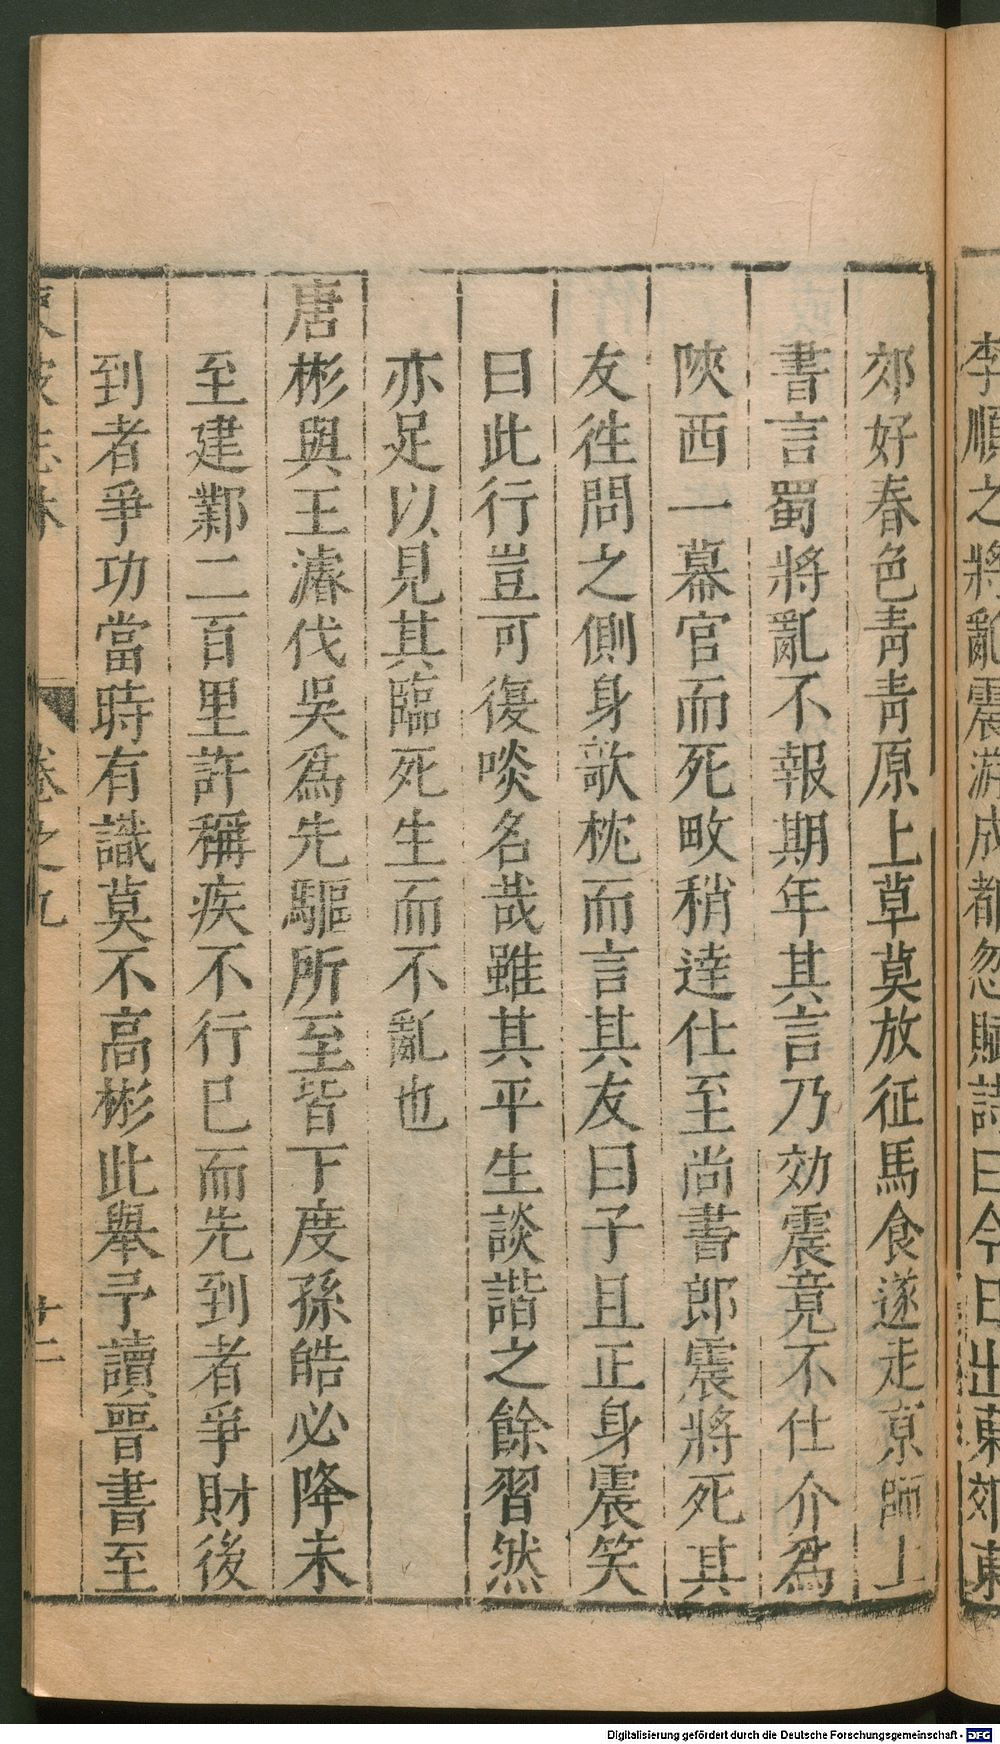 李順之將亂震游成都忽賦詩曰今日出東郊東
郊好春色青青原上草莫放征馬食遂走京師上
書言蜀將亂不報期年其言乃効震竟不仕介爲
陝西一幕官而死畋稍達仕至尚書郎震將死其
友徃問之側身歌枕而言其友曰子且正身震笑
曰此行豈可復啖名哉雖其平生談諧之餘習然
亦足以見其臨死生而不亂也
唐彬與王濬伐吳爲先驅所至皆下度孫皓必降未
至建鄴二百里許稱疾不行已而先到者爭財後
到者爭功當時有識莫不高彬此舉予讀晉書至
東坡志林
卷之九
廿二
Digitalisierung gefördert durch die Deutsche Forschungsgemeinschaft - DFG